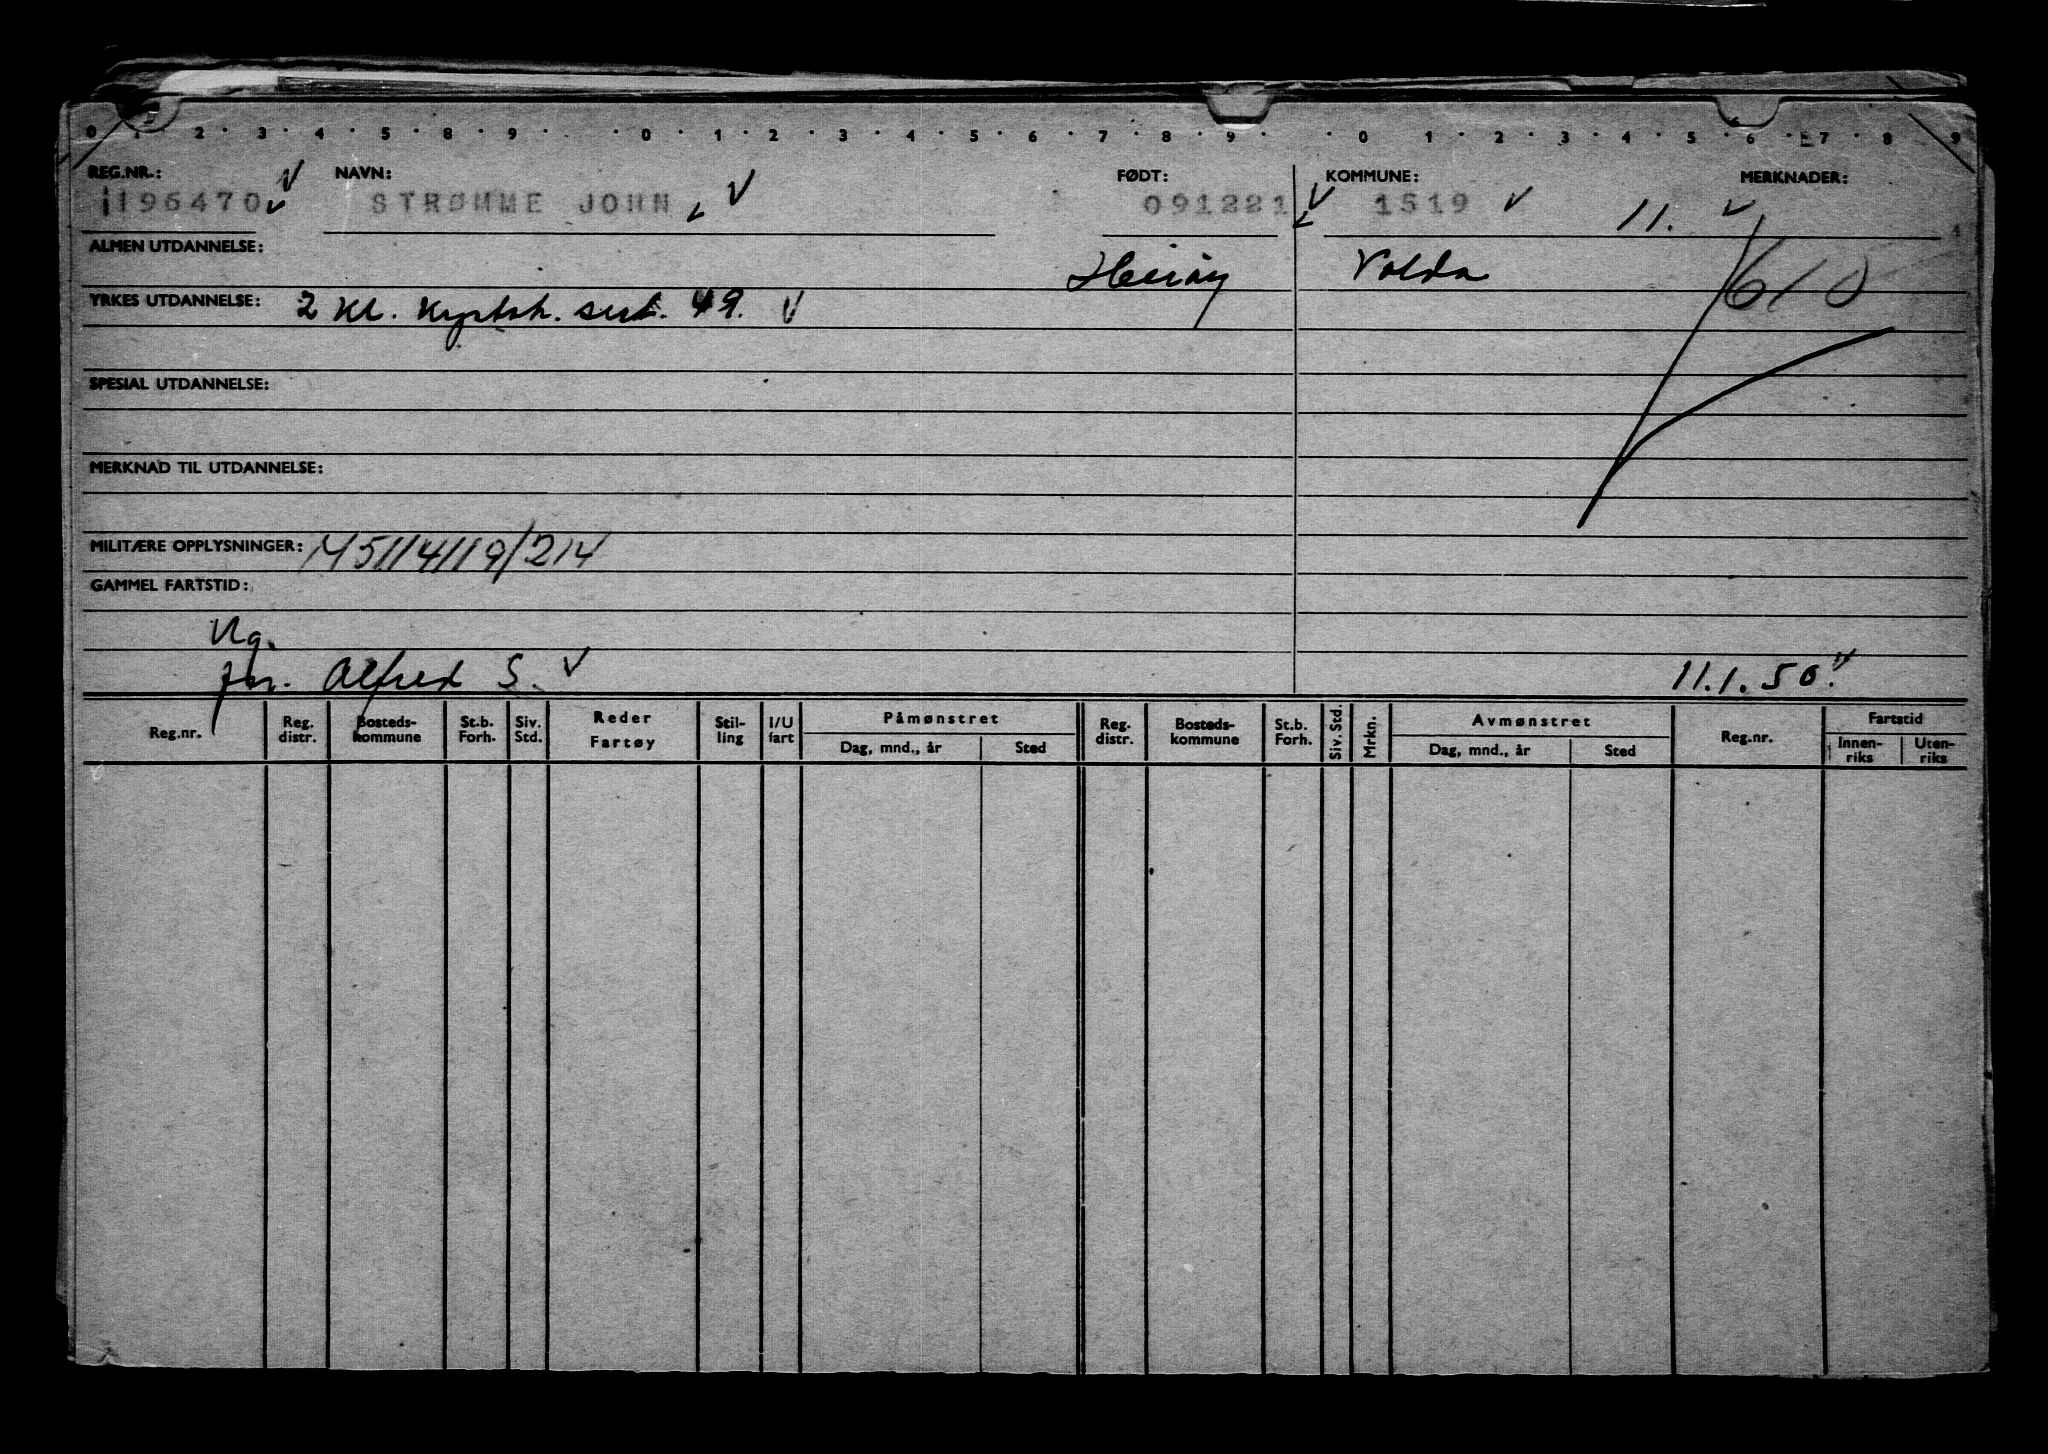 0 2 3 4 5 8 9 0 1 2 3 4 5 6 7 8 9 0 1 2 3 4 5 6 7 8 9
REG.NR.: NAVN: FØDT: KOMMUNE: MERKNADER:
196470 STRØMME JOHN 091221 1519 11.
ALMEN UTDANNELSE: Volda 610
YRKES UTDANNELSE: 2 kl. 49.
SPESIAL UTDANNELSE:
MERKNAD TIL UTDANNELSE:
MILITÆRE OPPLYSNINGER: M5114119/214
GAMMEL FARTSTID:
Ug.
for. Alfred S. 11.1.50.
Reg.nr. Reg. distr. Bosteds-kommune St.b. Forh. Siv. Std. Reder Fartøy Stil-ling I/U fart Påmønstret Dag, mnd., år Sted Reg. distr. Bosteds-kommune St.b. Forh. Siv. Std. Mrkn. Avmønstret Dag, mnd., år Sted Reg.nr. Fartstid Innen-riks Uten-riks